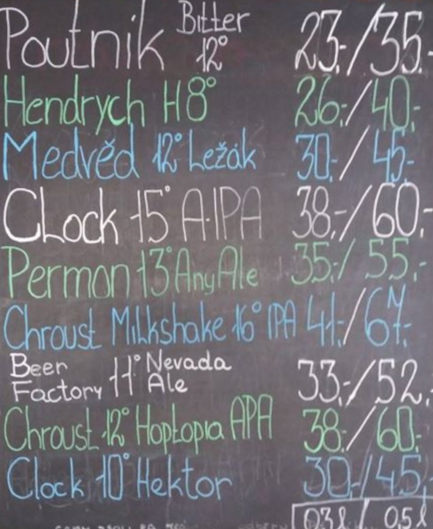 Poutnik Bitter 12° 23,-/35,-
Hendrych H8° 26,-/40,-
Medvěd 12° Ležák 30,-/45,-
CLock 15° A-IPA 38,-/60,-
Permon 13° Any Ale 35,-/55,-
Chroust Milkshake 16° IPA 41,-/67,-
Beer Factory 11° Nevada Ale 33,-/52,-
Chroust 12° Hoptopia APA 38,-/60,-
Clock 10° Hektor 30,-/45,-
0,3 l / 0,5 l